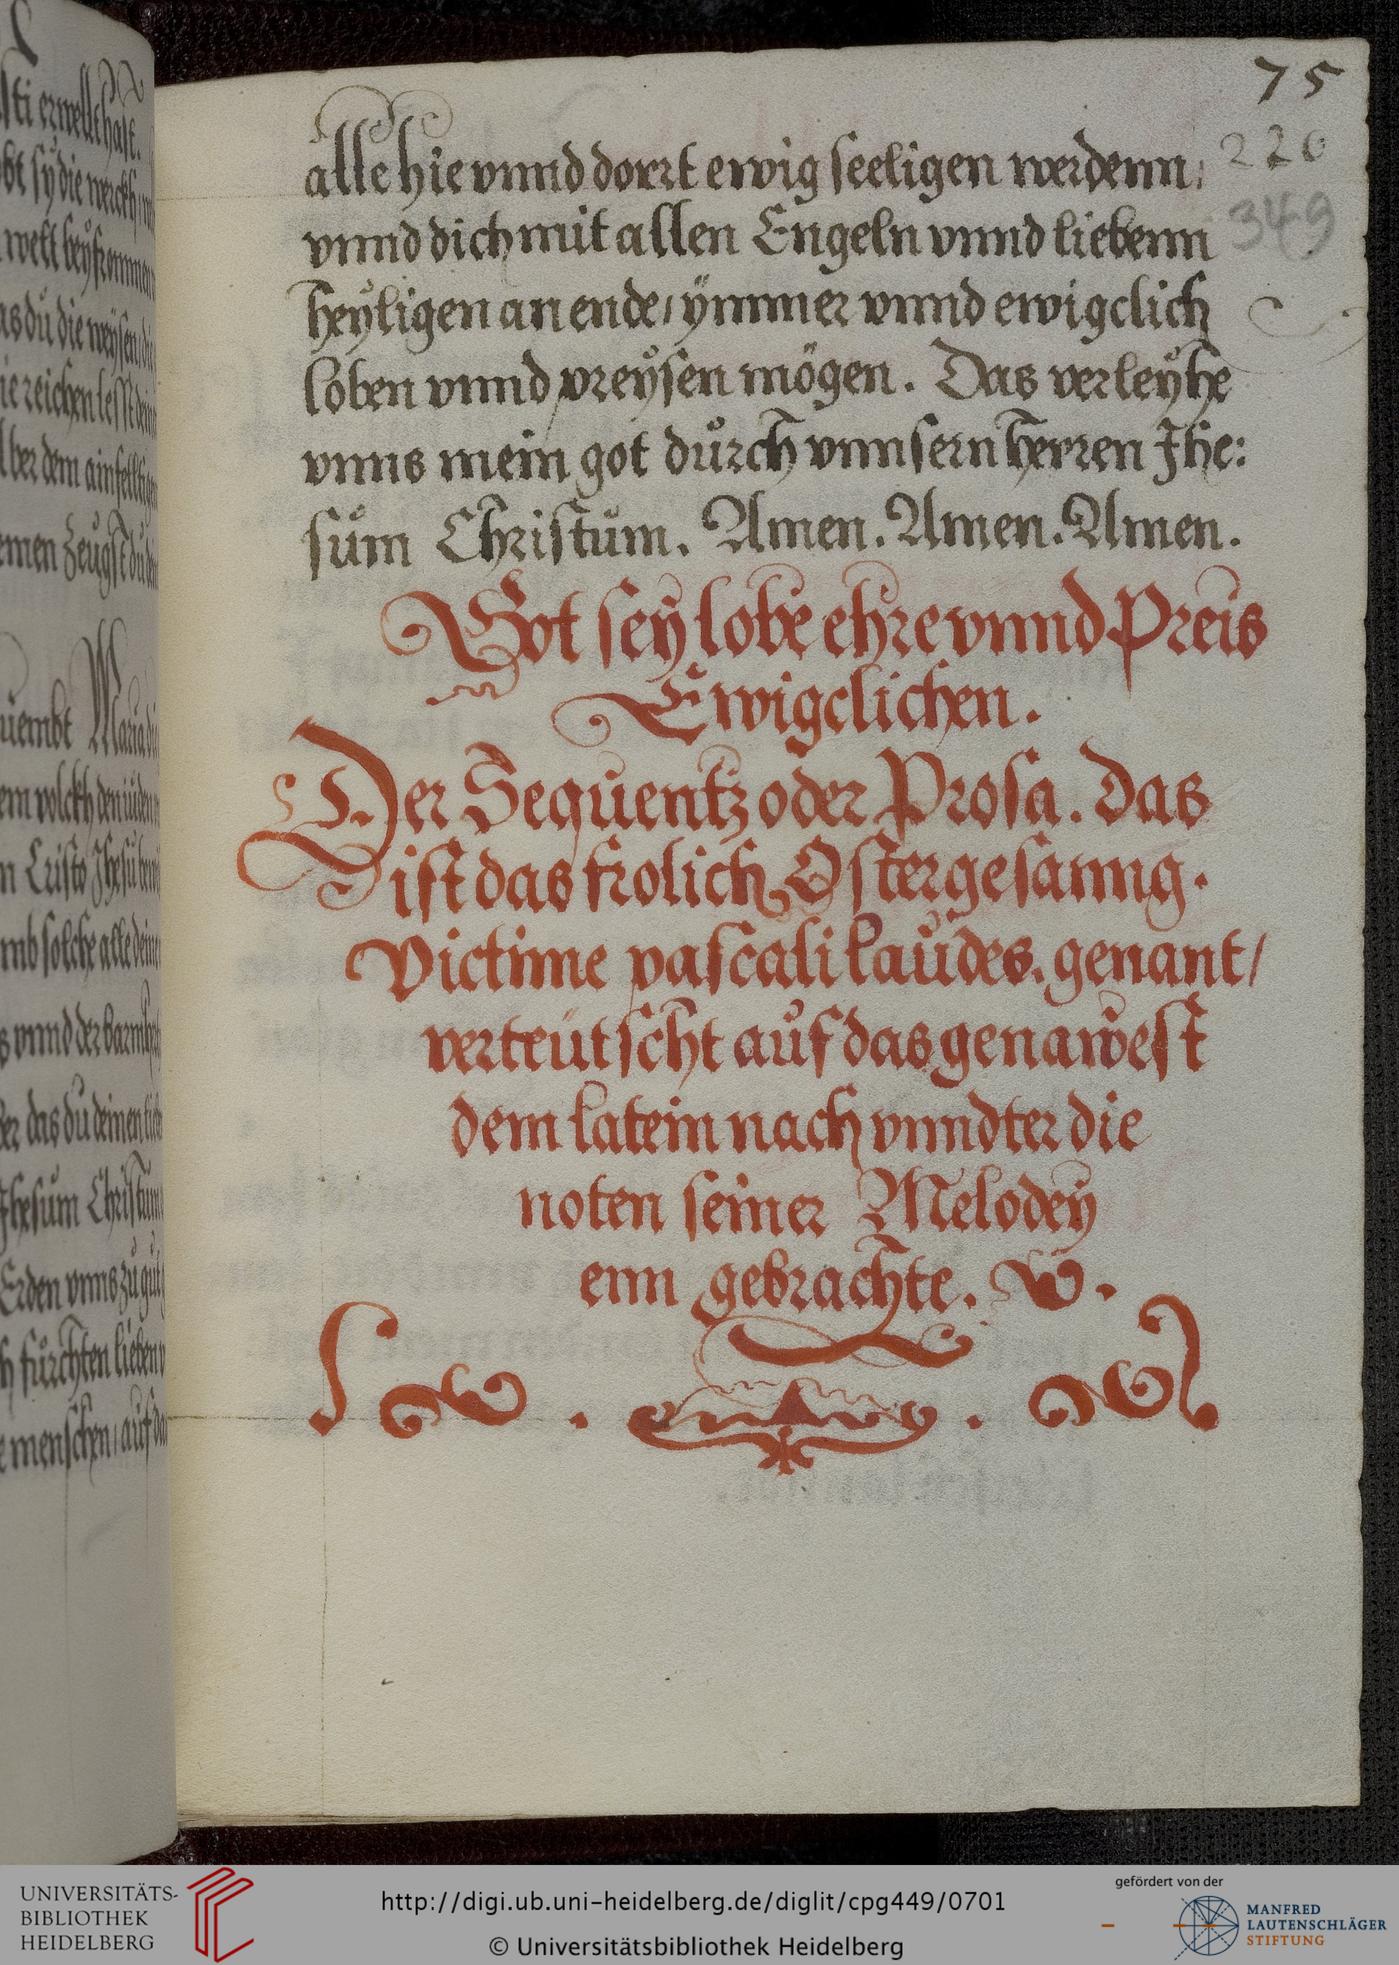 75
220
349
alle hie vnnd dorrt ewig seeligen werdenn,
vnnd dich mit allen Engeln vnnd liebenn
heÿligen an ende, ÿmmer vnnd ewigclich
loben vnnd preÿsen mögen. Das verleÿhe
vnns mein got důrch vnnsern herren Jhe:
sům Christům. Amen. Amen. Amen.
Got seÿ lobe ehre vnnd Preis
Ewigclichen.
Der Seqůentz oder Prosa. Das
ist das frolich Ostergesanng.
Victime pascali laůdes. genant/
verteütscht aůf das genawest
dem latein nach vnndter die
noten seiner Melodeÿ
enn gebrachte. W.
UNIVERSITÄTS-
BIBLIOTHEK
HEIDELBERG
http://digi.ub.uni-heidelberg.de/diglit/cpg449/0701
© Universitätsbibliothek Heidelberg
gefördert von der
MANFRED
LAUTENSCHLÄGER
STIFTUNG